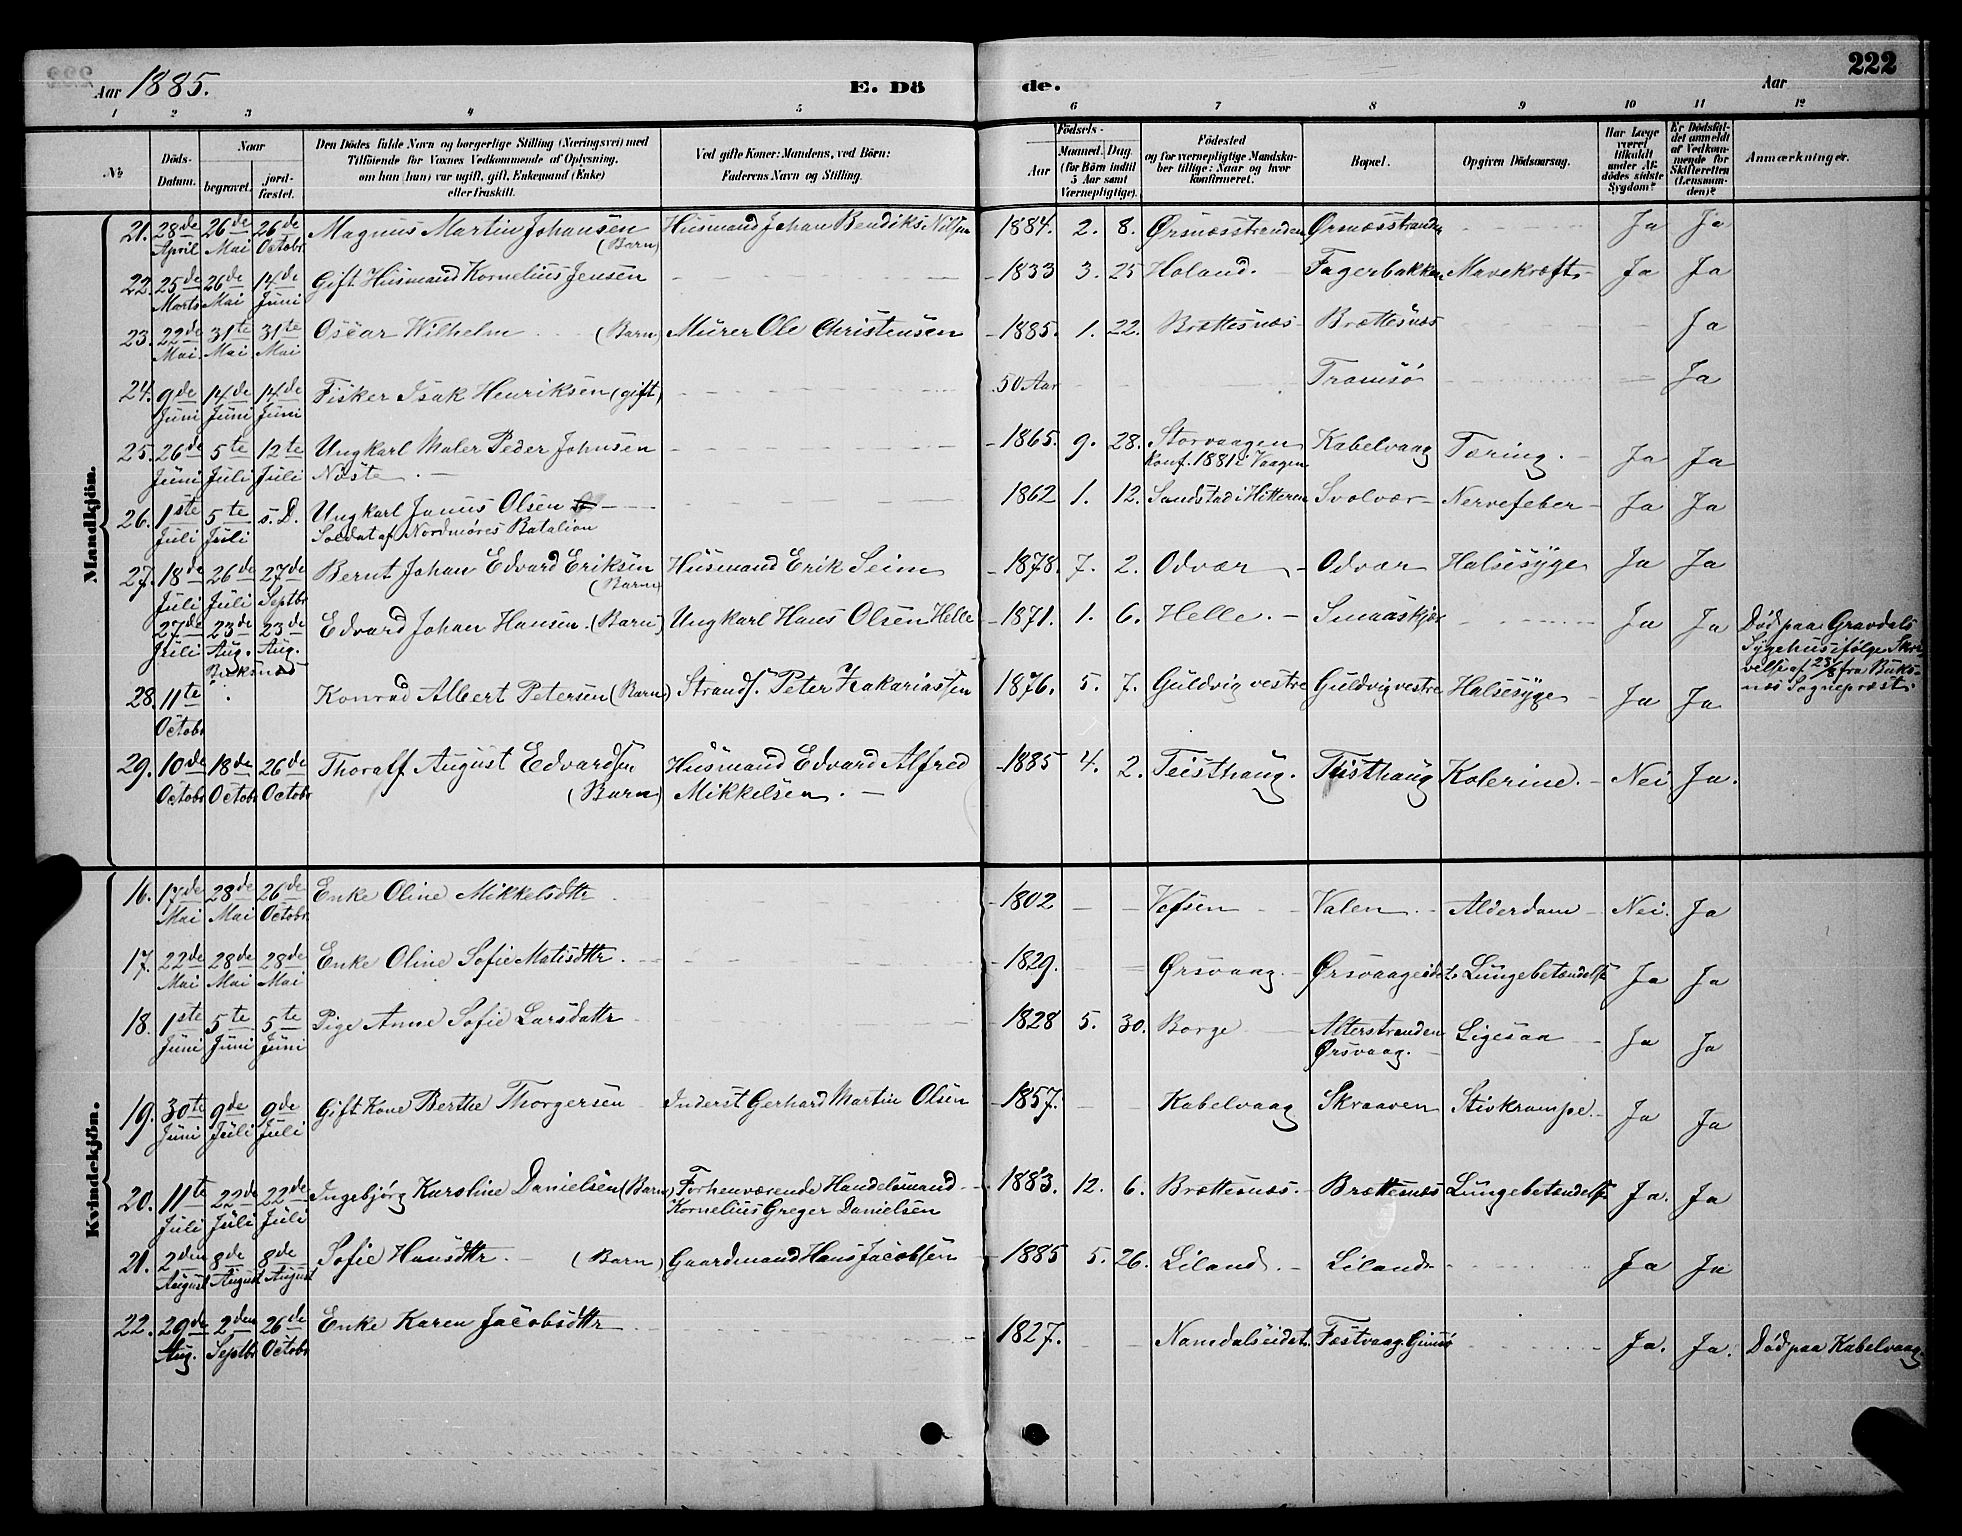 222
Aar 1885.
E. Dö de.
Aar
1 2 3 4 5 6 7 8 9 10 11 12
№
Döds-Datum.
Naar
begravet. jord-fæstet.
Den Dödes fulde Navn og borgerlige Stilling (Næringsvei) med
Tilföiende for Voxnes Vedkommende af Oplysning,
om han (hun) var ugift, gift, Enkemand (Enke)
eller fraskilt.
Ved gifte Koner: Mandens, ved Börn:
Faderens Navn og Stilling.
Födsels-
Aar
Maaned. Dag.
(for Börn indtil 5 Aar samt Værnepligtige).
Födested
og for værnepligtige Mandska-
ber tillige: Naar og hvor
konfirmeret.
Bopæl.
Opgiven Dödsaarsag.
Har Læge været tilkaldt under Afdödes sidste Sygdom?
Er Dödsfaldet anmeldt af Vedkommende for Skifteretten (Lensmanden)?
Anmærkninger.
Mandkjön.
21. 28de April 26de Mai 26de Octobr Magnus Martin Johansen (Barn) Husmand Johan Bendiks. Nilsen 1884. 2. 8. Ørsnæsstranden Ørsnæsstranden Ja Ja
22. 25de Marts 26de Mai 14de Juni Gift Husmand Kornelius Jensen 1833 3. 25 Holand. Fagerbakken Mavekræft Ja Ja
23. 22de Mai 31te Mai 31te Mai Oscar Wilhelm (Barn) Murer Ole Christensen 1885. 1. 22. Brættesnæs Brættesnæs Ja
24. 9de Juni 14de Juni 14de Juni Fisker Isak Henriksen (gift) 50 Aar Tromsø Ja
25. 26de Juni 5te Juli 12te Juli Ungkarl Maler Peder Johnsen 1865. 9. 28. Storvaagen Kabelvaag Tæring. Ja Ja
Næste Konf. 1881 i Vaagen
26. 1ste Juli 5te Juli s. D. Ungkarl Janus Olsen 1862 1. 12. Sandstad i Hitteren Svolvær Nervefeber Ja Ja
Soldat af Nordmøres Batalion
27. 18de Juli 26de Juli 27de Septbr Bernt Johan Edvard Eriksen (Barn) Husmand Erik Seim 1878. 7. 2. Odvær Odvær Halsesyge Ja Ja
27de Juli 23de Aug. 23de Aug. Buksnæs Edvard Johan Hansen. (Barn) Ungkarl Hans Olsen Helle 1871. 1. 6. Helle. Smaaskjær Ja Ja Død paa Gravdals
Sygehus ifølge Skri-
velse af 23/8 fra Buks-
næs Sognepræst.
28. 11te Octobr Konrad Albert Petersen (Barn) Strands. Peter Zakariassen 1876. 5. 7. Guldvig vestre Guldvig vestre Halsesyge Ja Ja
29. 10de Octobr 18de Octobr 26de Octobr Thoralf August Edvardsen (Barn) Husmand Edvard Alfred
Mikkelsen. 1885 4. 2. Teisthaug. Teisthaug Kolerine. Nei Ja.
Kvindekjön.
16. 17de Mai 28de Mai 26de Octobr Enke Oline Mikkelsdttr 1802 Vefsen Valen Alderdom Nei. Ja
17. 22de Mai 28de Mai 28de Mai Enke Oline Sofie Matisdttr. 1829. Ørsvaag. Ørsvaageidet Lungebetændelse Ja Ja
18. 1ste Juni 5te Juni 5te Juni Pige Anne Sofie Larsdattr 1828 5. 30. Borge Alterstranden
Ørsvaag. Ligesaa Ja Ja
19. 30te Juni 9de Juli 9de Juli Gift Kone Berthe Thorgersen Inderst Gerhard Martin Olsen 1857. Kabelvaag Skraaven Stivkrampe. Ja Ja
20. 11te Juli 22de Juli 22de Juli Ingebjørg Karoline Danielsen (Barn) Forhenværende Handelsmand
Kornelius Greger Danielsen 1883. 12. 6. Brættesnæs. Brættesnæs Lungebetændelse Ja. Ja
21. 2den August 8de August 8de August Sofie Hansdttr. (Barn) Gaardmand Hans Jacobsen 1885 5. 26. Liland. Liland Ja Ja
22. 29de Aug. 2den Septbr 26de Octobr Enke Karen Jacobsdttr 1827. Namdalseidet. Festvaag Gimsø Ja. Ja. Død paa Kabelvaag.